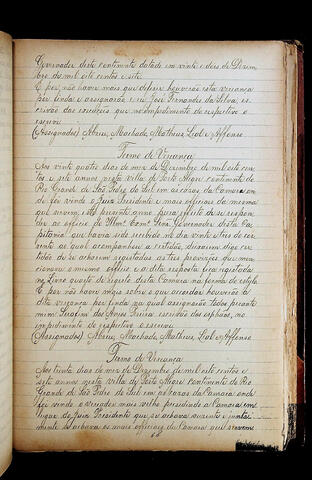 Governador deste continente datado em vinte e dois de Dezem
bro de mil oito centos e sete.
E por não haver mais que deferir houverão esta vereança
por finda e assignarão e eu José Fernandes da Silva, es
crivão das execuções que no impedimento do respectivo o
escrevi
(Assignados) Abreu, Machado, Matheus, Leal e Affonso
Termo de Vereança
Aos vinte quatro dias do mez de Dezembro de mil oito cen
tos e sete annos nesta villa de Porto Alegre continente do
Rio Grande de São Pedro do Sul em as casas da Camara on
de foi vindo o Juiz Presidente e mais officiaes da mesma
que servem este presente anno para effeito de se respon
der ao officio do Illmº Exmº Snr. Governador desta Ca
pitania que havia sido recebido no dia vinte e tres do cor
rente ao qual acompanhou a certidão, disseram digo cer
tidão de se acharem registadas as tres provisões, que men
cionou o mesmo officio e a dita resposta fica registada
no Livro quarto de registo desta Camara na forma do estylo
E por não haver mais sobre o que acordar houverão a
dita vereança por finda na qual assignarão todos perante
mim Serafim dos Anjos França escrivão dos orphãos, no
impedimento do respectivo o escrevi
(Assignados) Abreu, Machado, Matheus, Leal e Affonso
Termo de Vereança
Aos trinta dias do mez de Dezembro de mil oito centos e
sete annos nesta villa de Porto Alegre continente do Rio
Grande de São Pedro do Sul em as casas da Camara onde
foi vindo o vereador mais velho presidindo a Camara em
lugar do Juiz Presidente que se achava ausente e junta
mente se achava os mais officiaes da Camara que servem